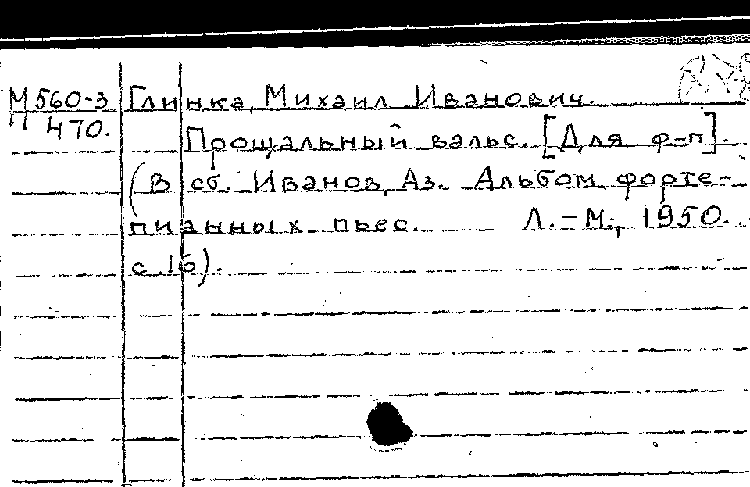 М560-3 Глинка, Михаил Иванович.
470. Прощальный вальс. [Для ф-п].
(В сб. Иванов, Аз. Альбом форте-
пианных пьес. Л.-М., 1950.
с 16).